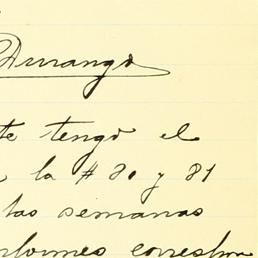 Durango
te tengo el
la # 80 y 81
las semanas
informes corresbon